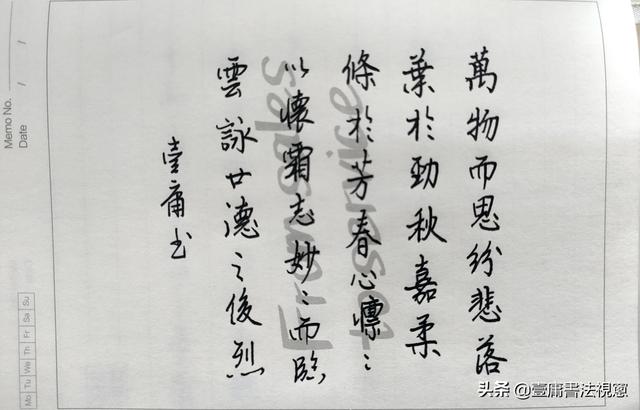 萬物而思紛悲落
葉於勁秋嘉柔
條於芳春心懍〻
以懷霜志妙〻而臨
雲詠世德之俊烈
壹庸书
Memo No.
Date / /
Mo Tu We Th Fr Sa Su
头条 @壹庸書法視窗